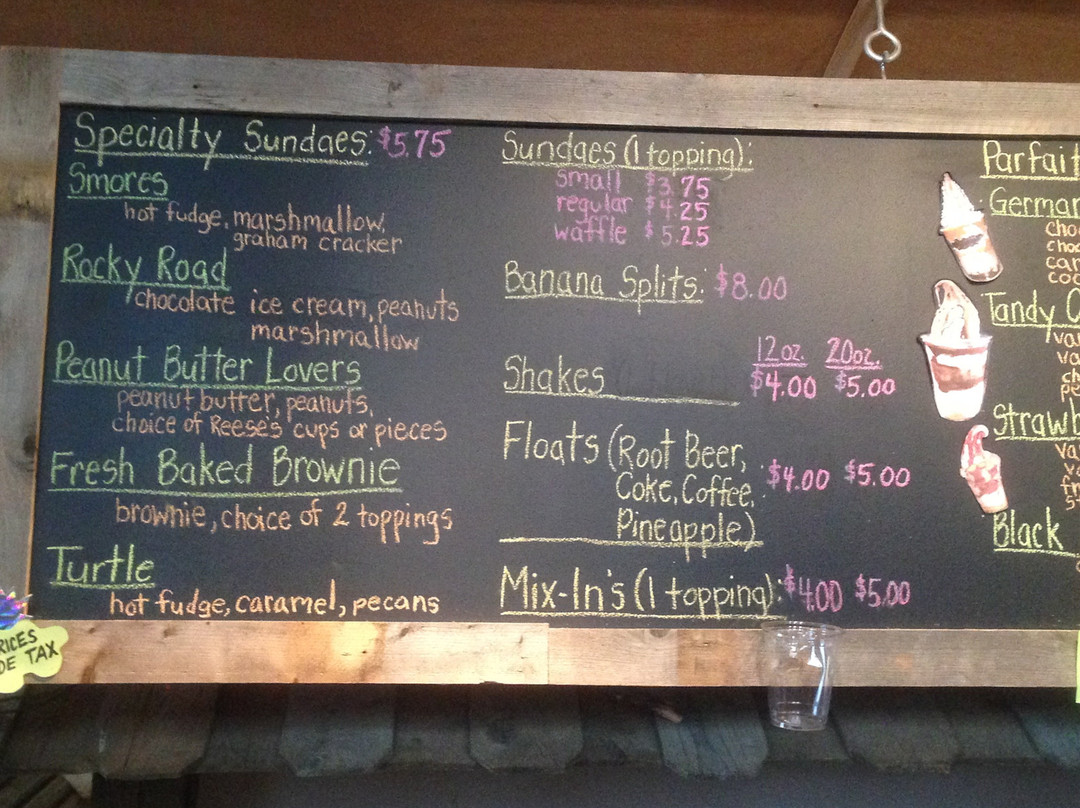 Specialty Sundaes: $5.75
Smores
hot fudge, marshmallow,
graham cracker
Rocky Road
chocolate ice cream, peanuts
marshmallow
Peanut Butter Lovers
peanut butter, peanuts,
choice of Reese's cups or pieces
Fresh Baked Brownie
brownie, choice of 2 toppings
Turtle
hot fudge, caramel, pecans
RICES
DE TAX
Sundaes (1 topping):
small $3.75
regular $4.25
waffle $5.25
Banana Splits: $8.00
12oz. 20oz.
Shakes $4.00 $5.00
Floats (Root Beer,
Coke, Coffee, : $4.00 $5.00
Pineapple)
Mix-In's (1 topping): $4.00 $5.00
Parfait
German
cho
cho
car
coc
Tandy C
va
va
ch
pe
Strawb
va
va
fr
s
Black